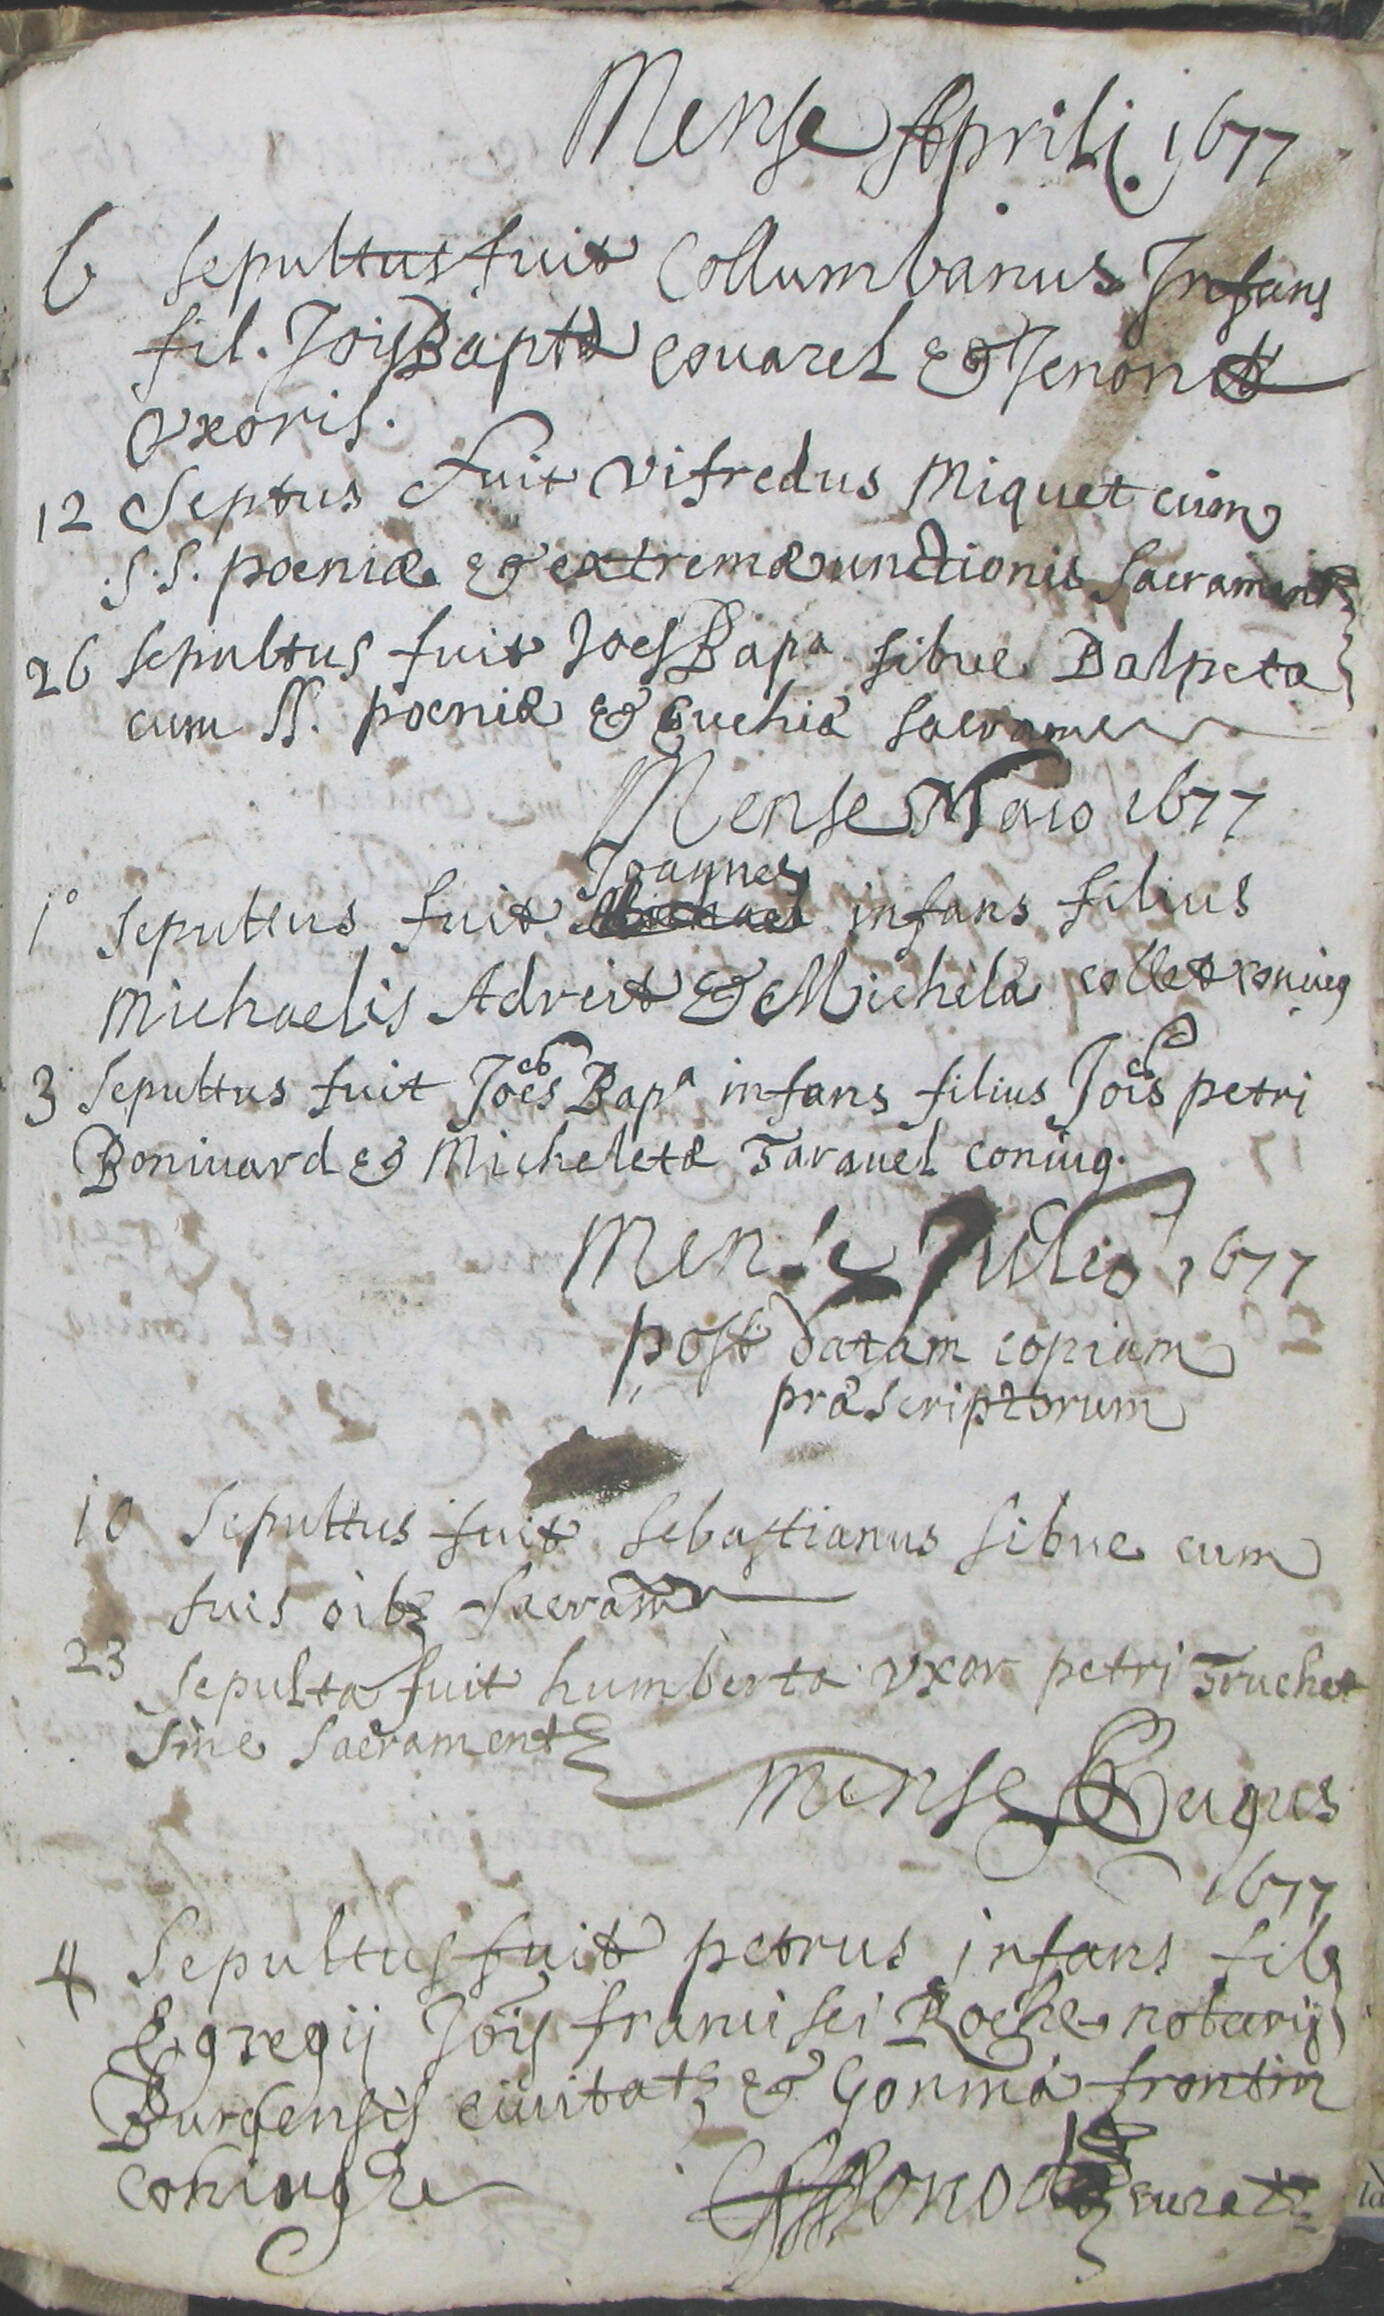 Mense Aprili 1677
6 sepultus fuit Collumbanus Infans
fil. Jois Baptæ covarel & Jenon
Vxoris.
12 Septus fuit Vifredus Miquet cum
S.S. poeniæ & extremæ unctionis Sacrament
26 sepultus fuit Joes Bapa sibue Dalpeta
cum SS. poeniæ & Euchiæ sacramen
Mense Maio 1677
Joannes
1° sepultus fuit infans filius
Michaelis Advert & Michelæ collet coniug
3 sepultus fuit Joes Bapa infans filius Jois petri
Boniuard & Micheletæ Tarauel coniug.
Mense Julio 1677
post datam copiam
præscriptorum
10 Sepultus fuit Sebastianus Sibue cum
suis oibz Sacram
23 sepulta fuit humberta vxor petri Truchet
sine Sacrament
mense Augus
1677
4 Sepultus fuit petrus infans fil
Egregij Jois francisci Roche notarij
Burgensis ciuitat & frontin
coniug
curat